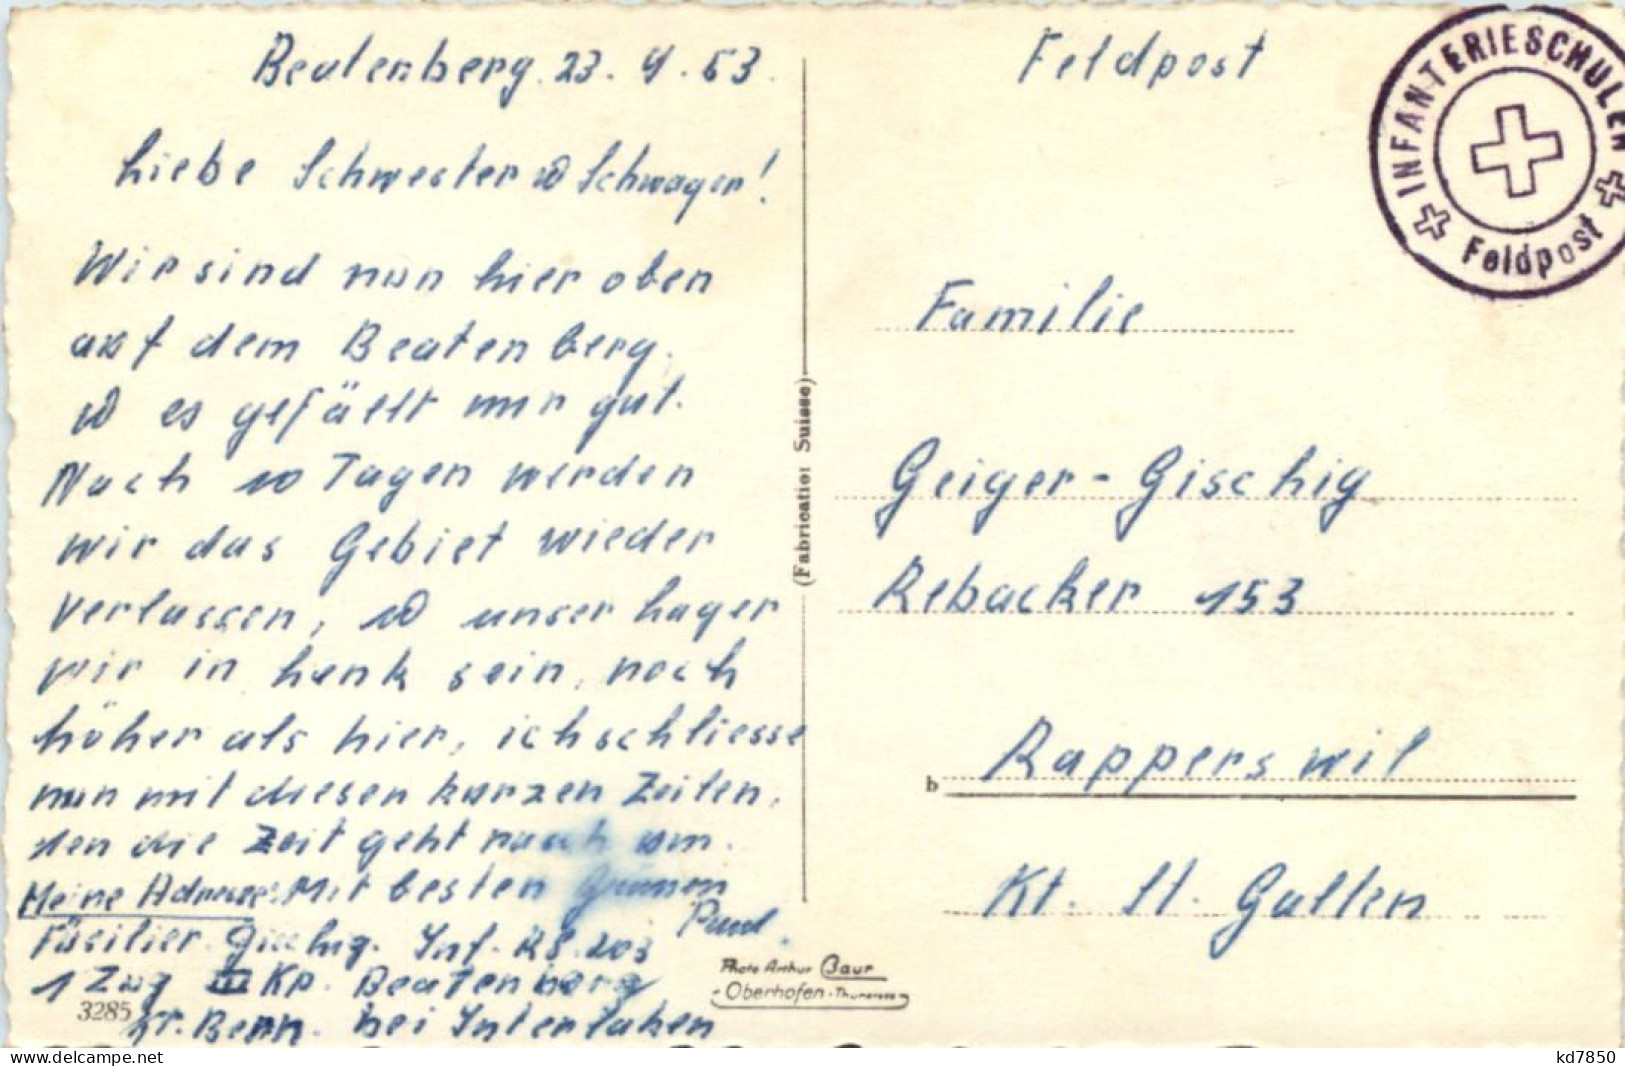 Beatenberg 23. 4. 53.
Liebe Schwester u Schwager!
Wir sind nun hier oben
auf dem Beatenberg.
u es gefällt mir gut.
Nach 10 Tagen werden
wir das Gebiet wieder
verlassen, u unser Lager
wir in Lenk sein, noch
höher als hier, ich schliesse
nun mit diesen kurzen Zeilen,
den die Zeit geht rasch um.
Mit besten Grüssen
Paul
Meine Adresse:
Füsilier Gischig. Inf. RS. 203
1 Zug III Kp. Beatenberg
Kt. Bern. bei Interlaken
3285
(Fabrication Suisse)
Photo Arthur Baur
Oberhofen-Thunersee
Feldpost
INFANTERIESCHULEN
Feldpost
Familie
Geiger-Gischig
Rebacker 153
b
Rapperswil
Kt. St. Gallen
delcampe.net
kd7850